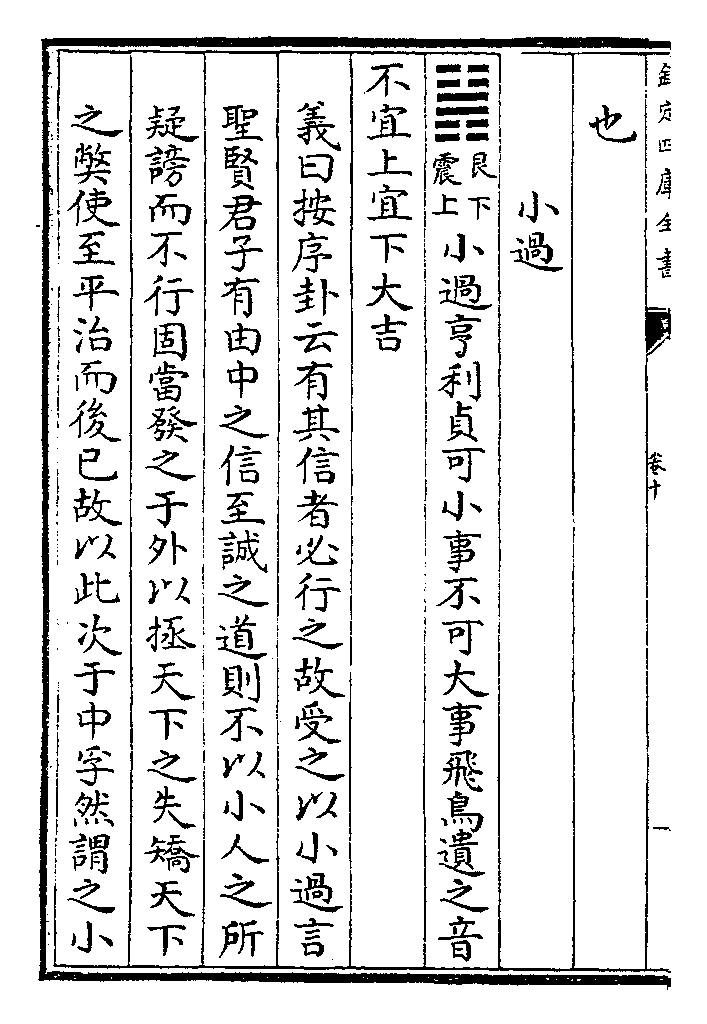 欽定四庫全書
卷十
也
小過
䷽艮下震上小過亨利貞可小事不可大事飛鳥遺之音
不宜上宜下大吉
義曰按序卦云有其信者必行之故受之以小過言
聖賢君子有由中之信至誠之道則不以小人之所
疑謗而不行固當發之于外以拯天下之失矯天下
之弊使至平治而後已故以此次于中孚然謂之小